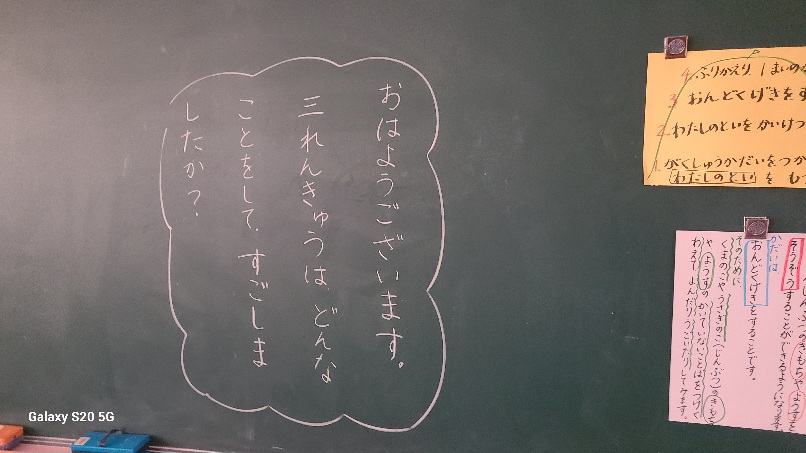 おはようございます。
三れんきゅうは、どんな
ことをして、すごしま
したか？
4 ふりかえり
3 おんどくげきを
2 わたしのといをかいけつ
1 がくしゅうかだいをつか
わたしのとい を も
そうぞうすることができるようになります
かだいは、
おんどくげきをすることです。
そのために、
くまのこやうさぎのこ(じんぶつ)の
やようすのかいていないことばをつけて
Galaxy S20 5G